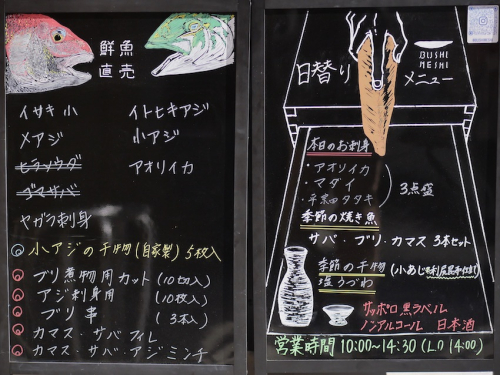 鮮魚
直売
イサキ 小
イトヒキアジ
メアジ
小アジ
ヒラソウダ
アオリイカ
ゴマサバ
ヤガラ刺身
小アジの干物(自家製)5枚入
ブリ煮物用カット(10切入)
アジ刺身用 (10枚入)
ブリ串 (3本入)
カマス・サバフィレ
カマス・サバ・アジミンチ
日替り
BUSHI
MESHI
メニュー
本日のお刺身
・アオリイカ
・マダイ
タタキ
3点盛
季節の焼き魚
サバ・ブリ・カマス 3本セット
季節の干物(小あじ
塩うづわ
サッポロ黒ラベル
ノンアルコール 日本酒
営業時間 10:00~14:30(L.O 14:00)